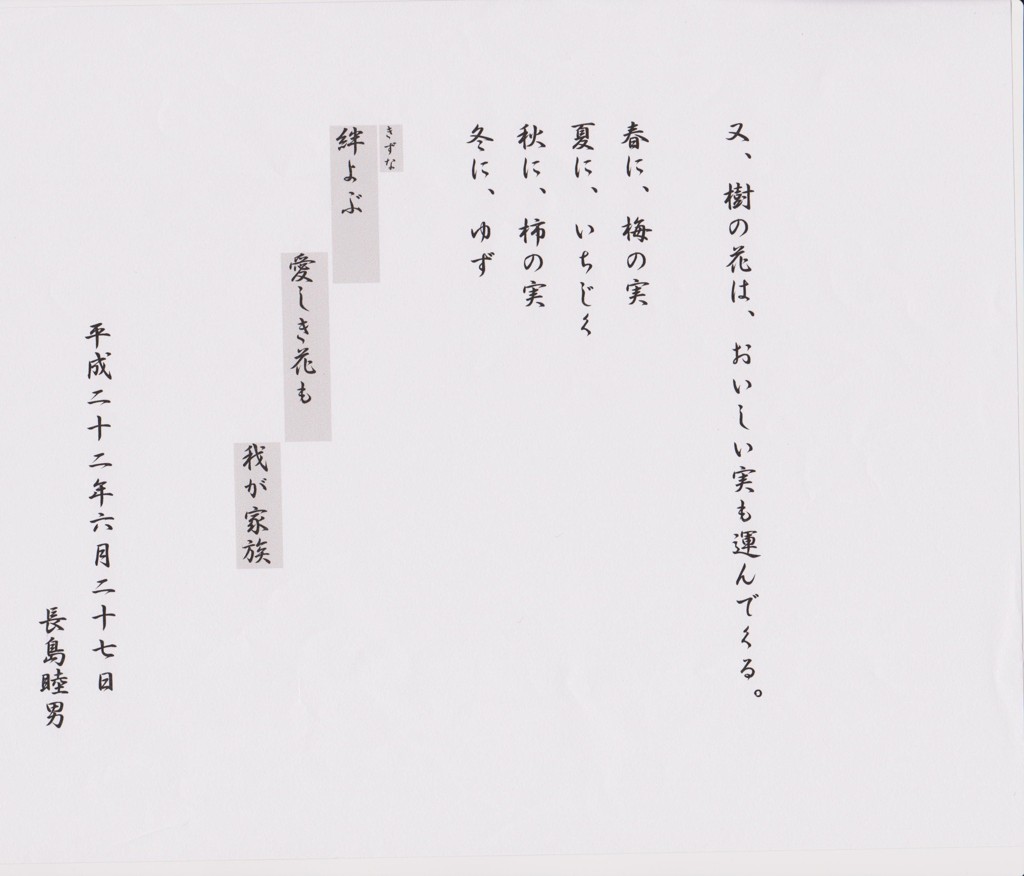 又、樹の花は、おいしい実も運んでくる。
春に、梅の実
夏に、いちじく
秋に、柿の実
冬に、ゆず
きずな
絆よぶ
愛しき花も
我が家族
平成二十二年六月二十七日
長島睦男